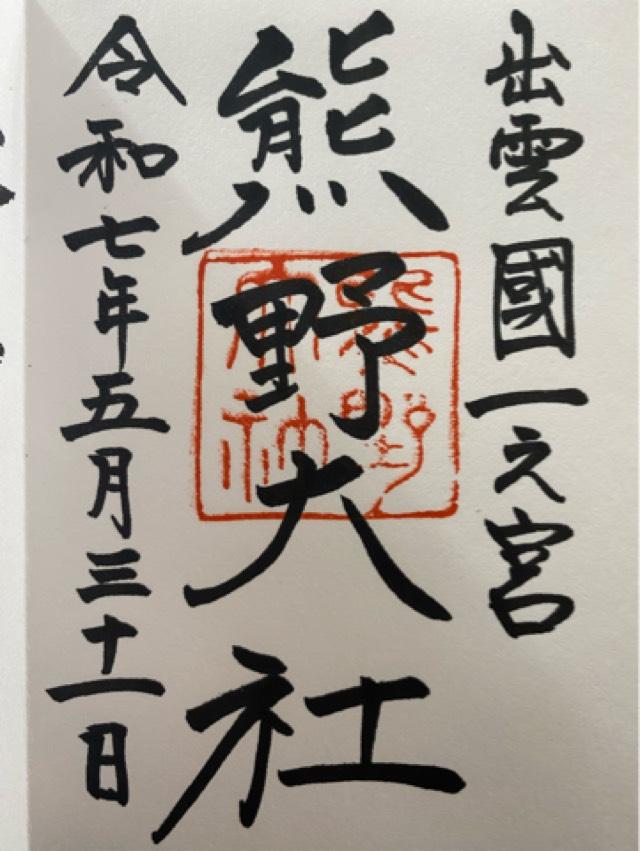 出雲國一之宮
熊野大社
令和七年五月三十一日